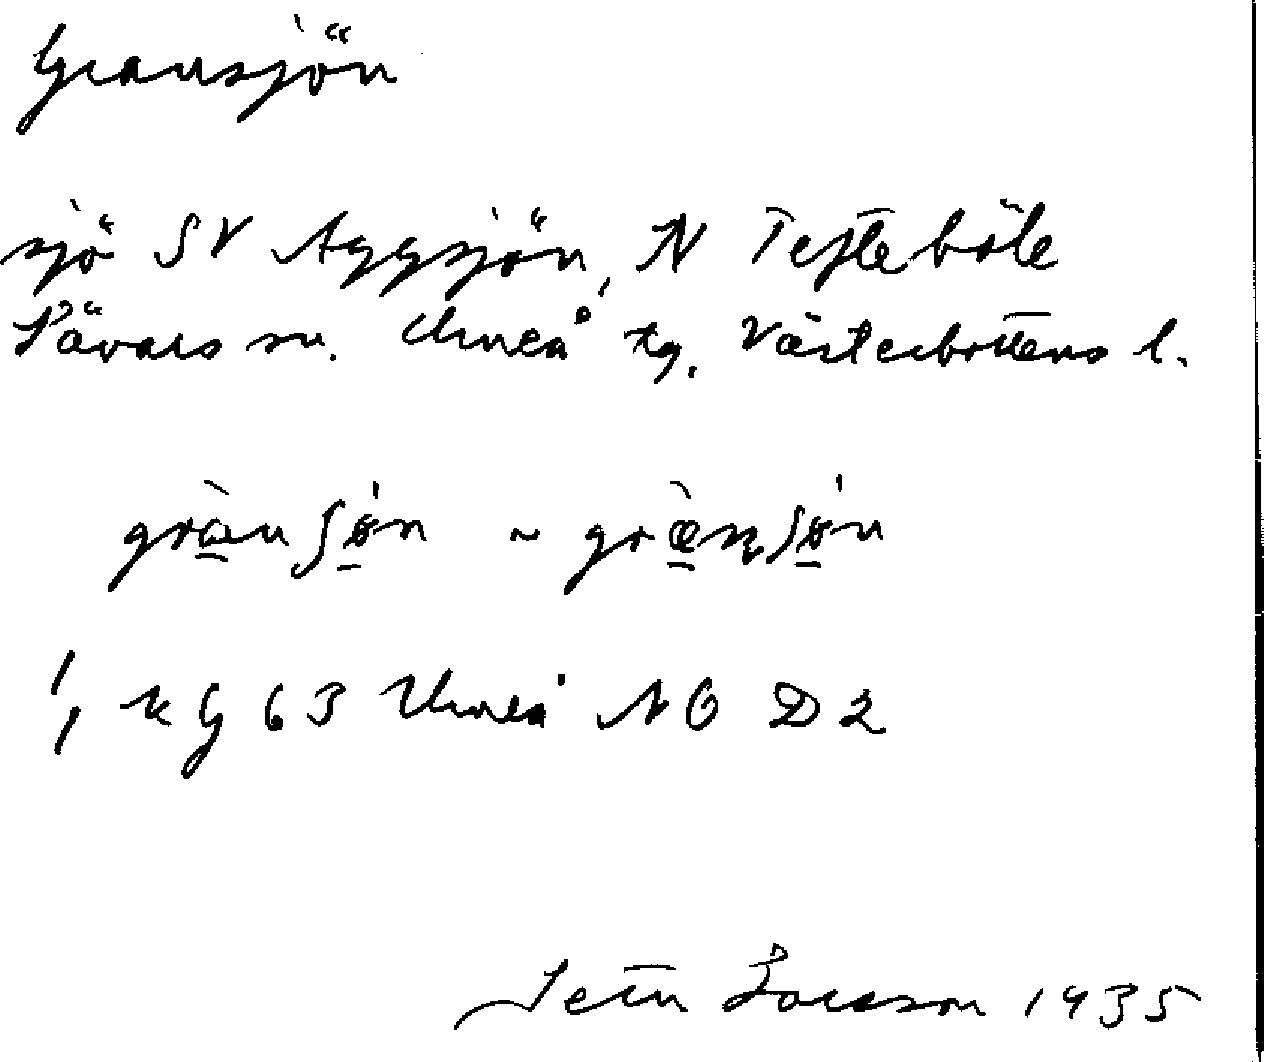 Gransjön
sjö SV Aggsjön, N Tefteböle
Sävars sn. Umeå tg. Västerbottens l.
græ̀nʃøń ~ græ̀ɳʃøń
kG 63 Umeå NO D2
Setn Larsson 1935